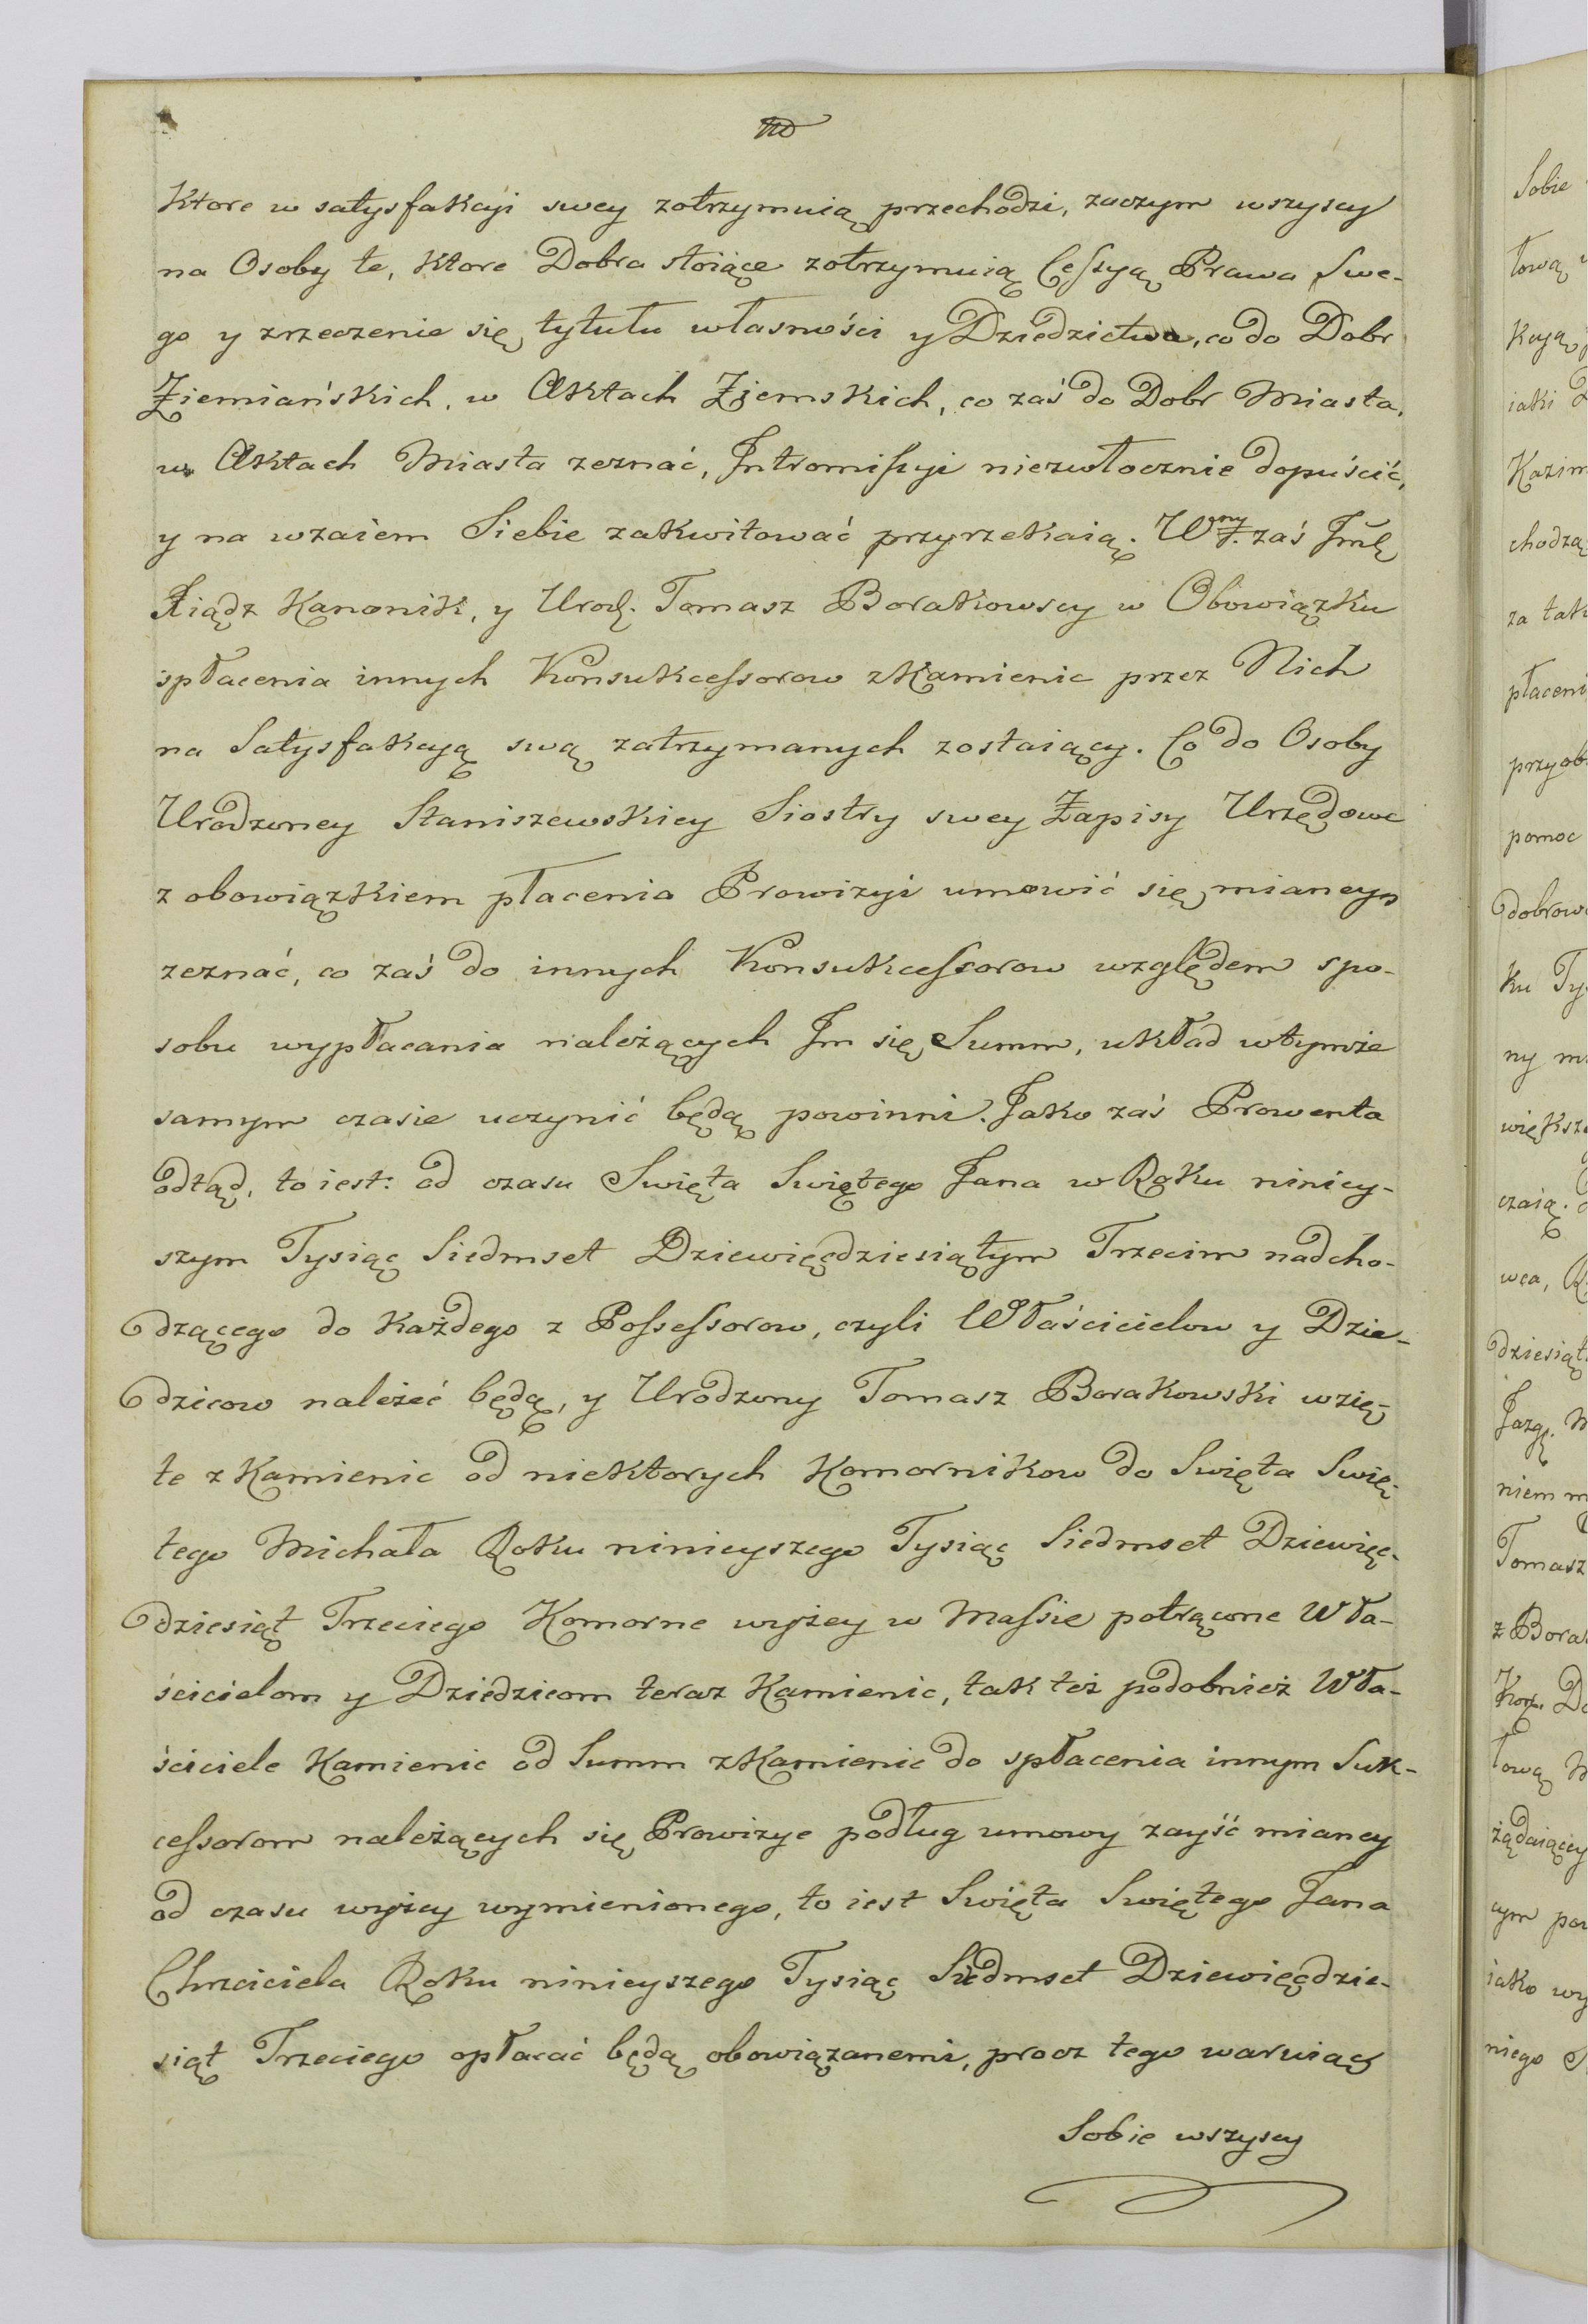 Ktore w satysfakcyi swey zotrzymuią przechodzi, zaczym wszyscy
na Osoby te, Ktore Dobra stoiące zotrzymuią Cessyą Prawa Swe-
go y zrzeczenie się tytułu własności y Dziedzictwa, co do Dobr
Ziemiańskich, w Aktach Ziemskich, co zaś do Dobr Miasta,
w Aktach Miasta zeznać, Intromissyi niezwłocznie dopuścić,
y na wzaiem Siebie zakwitować przyrzekaią. W zaś
Xiądz Kanonik, y Urodz. Tomasz Borakowscy w Obowiązku
spłacenia innych Konsukcessorow z Kamienic przez Nich
na Satysfakcyą swą zatrzymanych zostaiący. Co do Osoby
Urodzoney Staniszewskiey Siostry swey Zapisy Urzędowe
z obowiązkiem płacenia Prowizyi umowić się mianey
zeznać, co zaś do innych Konsukcessorow względem spo-
sobu wypłacania należących Im się Summ, układ w tymże
samym czasie uczynić będą powinni. Jako zaś Prowenta
odtąd, to iest: od czasu Swięta Swiętego Jana w Roku ninicy-
szym Tysiąc Siedmset Dziewięćdziesiątym Trzecim nadcho-
dzącego do Każdego z Possessorow, czyli Właścicielow y Dzie-
dzicow należeć będą, y Urodzony Tomasz Borakowski wzię-
te z Kamienic od niektorych Komornikow do Swięta Swię-
tego Michała Roku ninieyszego Tysiąc Siedmset Dziewięć-
dziesiąt Trzeciego Komorne wyżey w Massie potrącone Wła-
ścicielom y Dziedzicom teraz Kamienic, tak też podobnież Wła-
ściciele Kamienic od Summ z Kamienic do spłacenia innym Suk-
cessorom należących się Prowizye podług umowy zayść mianey
od czasu wyżey wymienionego, to iest Swięta Swiętego Jana
Chrzciciela Roku ninieyszego Tysiąc Siedmset Dziewięćdzie-
siąt Trzeciego opłacać będą obowiązanemi, procz tego waruiąc
Sobie wszyscy
Sobie
tową
Kcyą
iaki
Kazim
chodzą
za tak
płaceni
przyob
pomoc
dobrow
ku Ty
ny m
większ
czaią.
wca, R
dziesiąt
niem m
Tomasz
z Bora
tową M
żądaiący
cym po
iako wy
niego S